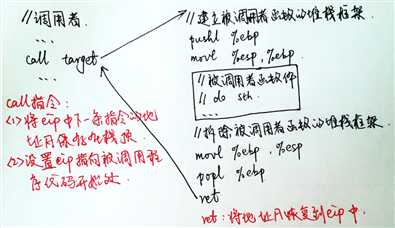 //调用者
...
call target
...
call指令:
(1)将eip中下一条指令的地
址A保存在栈顶
(2)设置eip指向被调用程
序代码开始处
//建立被调用者函数的堆栈框架
pushl %ebp
movl %esp,%ebp
//被调用者函数体
// do sth.
//拆除被调用者函数的堆栈框架
movl %ebp,%esp
popl %ebp
ret
ret:将地址A恢复到eip中.